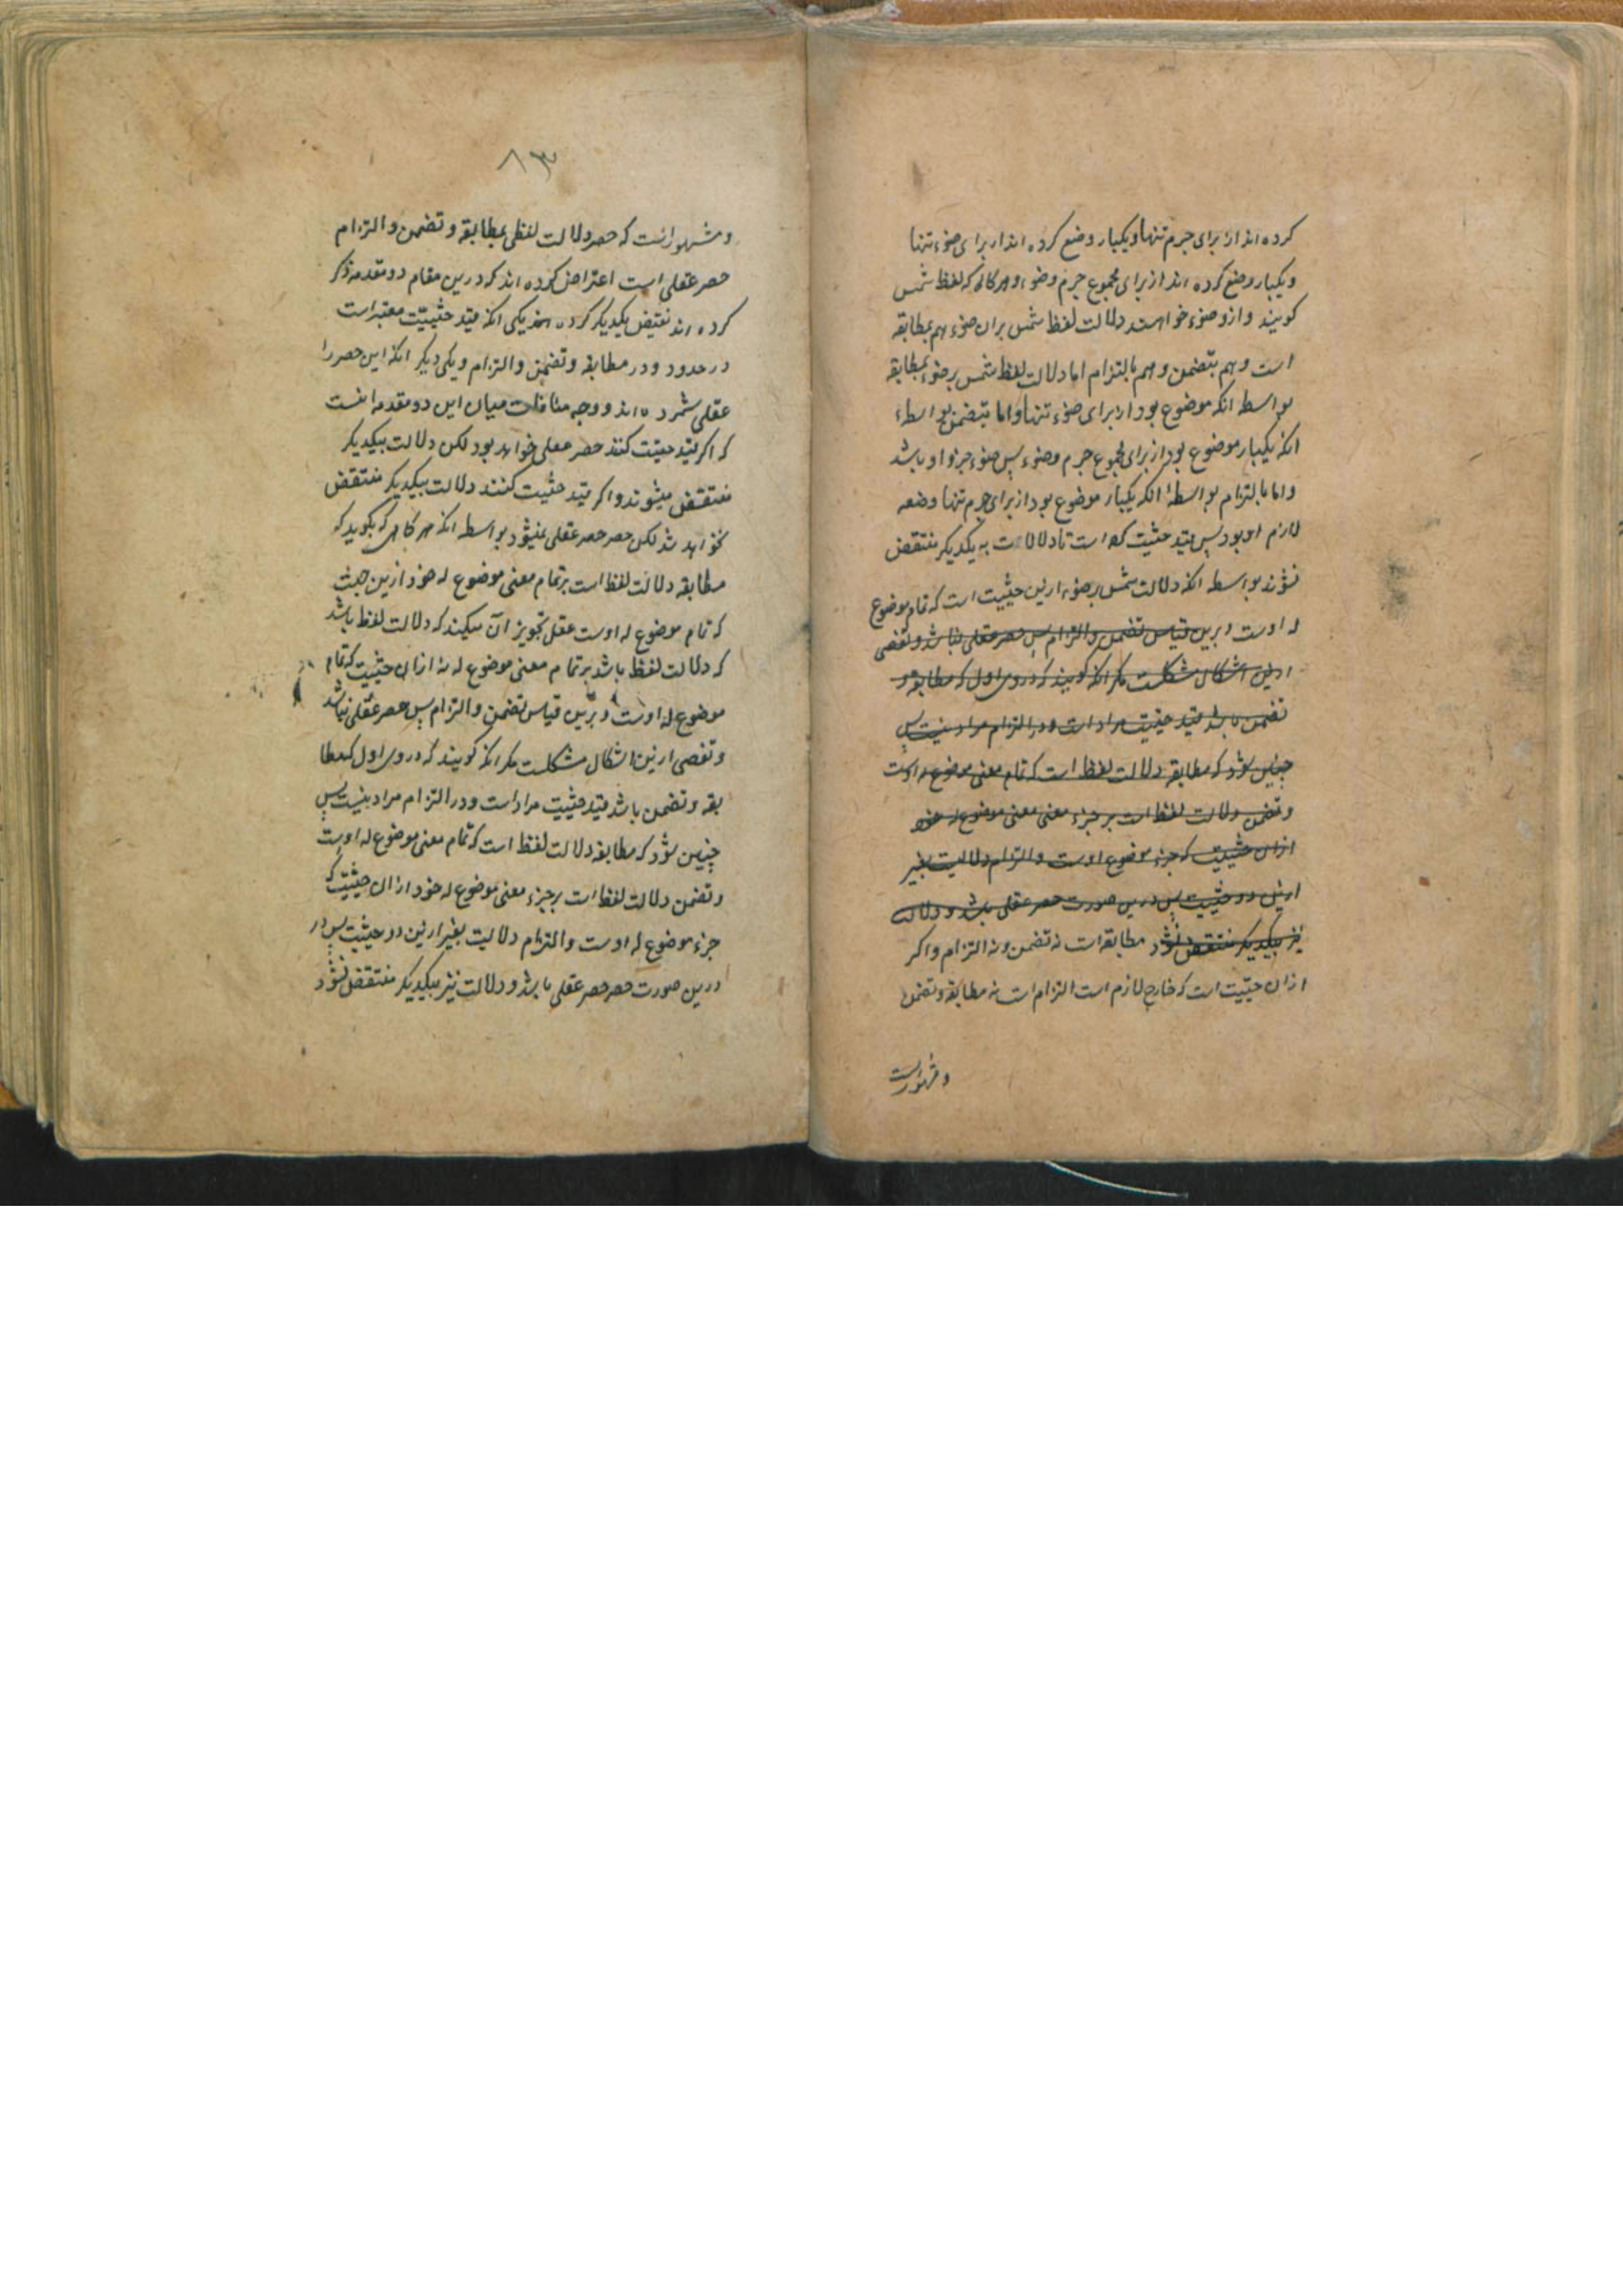 کرده اند از برای جرم تنها و یکبار وضع کرده اند از برای ضوء تنها
و یکبار وضع کرده اند از برای مجموع جرم و ضوء و هر کاهی که لفظ شمس
کویند و ازو ضوء خواهند دلالت لفظ شمس بران ضوء هم بمطابقه
است و هم بتضمن و هم بالتزام اما دلالت لفظ شمس بر ضوء بمطابقه
بواسطه انکه موضوع بود از برای ضوء تنها و اما بتضمن بواسطهٔ
انکه یکبار موضوع بود از برای مجموع جرم و ضوء پس ضوء جزو او باشد
و اما بالتزام بواسطهٔ انکه یکبار موضوع بود از برای جرم تنها وضعه
لازم او بود پس بقید حیثیت است تا دلالات به یکدیکر منتقض
نشوند بواسطه انکه دلالت شمس بر ضوء ازین حیثیت است که تمام موضوع
له اوست و برین قیاس تضمن و التزام پس حصر عقلی نباشد و تفصی
ازین اشکال مشکلست مکر انکه کویند که دروی اول که مطابقه و
تضمن باشد قید حیثیت مراد است و در التزام مراد نیست پس
چنین شود که مطابقه دلالت لفظ است که تمام معنی موضوع له اوست
و تضمن دلالت لفظ است بر جزء معنی معنی موضوع له خود
ازان حیثیت که جزء موضوع اوست و التزام دلالیت بغیر
ازین دو حیثیت پس درین صورت حصر عقلی باشد و دلالت
نیز بیکدیکر منتقض نشود مطابقه است نه تضمن و نه التزام و اکر
ازان حیثیت است که خارج لازم است التزام است نه مطابقه و تضمن
و مشهور انست
۸۳
و مشهور انست که حصر دلالت لفظی بمطابقه و تضمن و التزام
حصر عقلی است اعتراض کرده اند که درین مقام دو مقدمه ذکر
کرده اند نقیض یکدیکر کرده یکی انکه قید حیثیت معتبر است
در حدود و در مطابقه و تضمن و التزام و یکی دیکر انکه این حصر را
عقلی شمرده اند و وجه منافات میان این دو مقدمه انست
که اکر قید حیثیت کنند حصر عقلی خواهد بود لکن دلالت بیکدیکر
منتقض میشوند و اکر قید حیثیت کنند دلالت بیکدیکر منتقض
نخواهد شد لکن حصر حصر عقلی نمیشود بواسطه انکه هر کاهی که بکوید که
مطابقه دلالت لفظ است بر تمام معنی موضوع له خود ازین حیثیت
که تمام موضوع له اوست عقل تجویز آن میکند که دلالت لفظ باشد
که دلالت لفظ باشد بر تمام معنی موضوع له نه ازان حیثیت که تمام
موضوع له اوست و برین قیاس تضمن و التزام پس حصر عقلی نباشد
و تفصی ازین اشکال مشکلست مکر انکه کویند که دروی اول که مطا
بقه و تضمن باشد قید حیثیت مراد است و در التزام مراد نیست پس
چنین شود که مطابقه دلالت لفظ است که تمام معنی موضوع له اوست
و تضمن دلالت لفظ است بر جزء معنی موضوع له خود ازان حیثیت که
جزء موضوع له اوست و التزام دلالیت بغیر ازین دو حیثیت پس در
درین صورت حصر حصر عقلی باشد و دلالت نیز بیکدیکر منتقض نشود